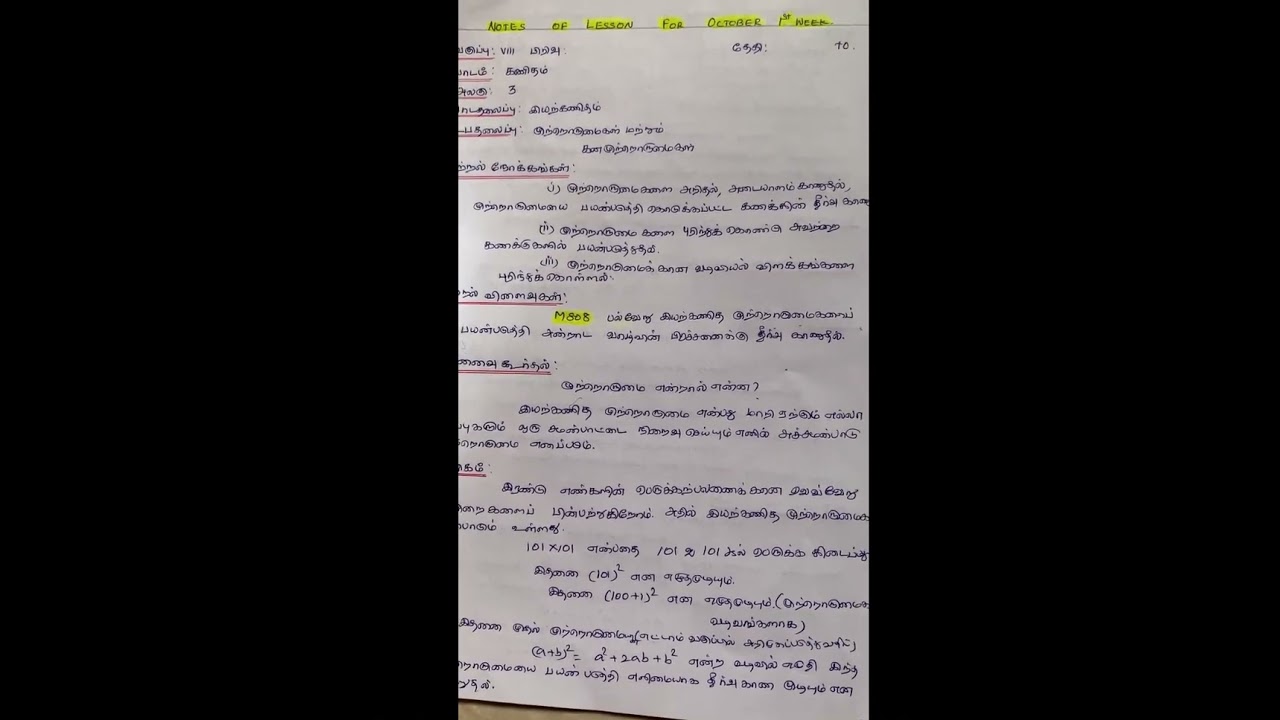 NOTES OF LESSON FOR OCTOBER 1ST WEEK.
குப்பு: VIII பிரிவு: தேதி: 10.
பாடம்: கணிதம்
அலகு: 3
பாடதலைப்பு: இயற்கணிதம்
உபதலைப்பு: முற்றொருமைகள் மற்றும்
கனமுற்றொருமைகள்
ற்றல் நோக்கங்கள்:
i) முற்றொருமைகளை அறிதல், அடையாளம் காணுதல்,
முற்றொருமையை பயன்படுத்தி கொடுக்கப்பட்ட கணக்கின் தீர்வு காண
(ii) முற்றொருமைகளை புரிந்துக் கொண்டு அவற்றை
கணக்குகளில் பயன்படுத்துதல்.
iii) முற்றொருமைக்கான வடிவியல் விளக்கங்களை
புரிந்துக் கொள்ளல்.
றல் விளைவுகள்:
M808 பல்வேறு இயற்கணித முற்றொருமைகளைப்
பயன்படுத்தி அன்றாட வாழ்வின் பிரச்சனைக்கு தீர்வு காணுதல்.
னைவு கூர்தல்:
முற்றொருமை என்றால் என்ன?
இயற்கணித முற்றொருமை என்பது மாறி ஏற்கும் எல்லா
ப்புகளும் ஒரு சமன்பாட்டை நிறைவு செய்யும் எனில் அச்சமன்பாடு
ற்றொருமை எனப்படும்.
கம்:
இரண்டு எண்களின் பெருக்கற்பலனைக் கான வெவ்வேறு
முறைகளைப் பின்பற்றுகிறோம். அதில் இயற்கணித முற்றொருமைக
பாடும் உள்ளது.
101 X 101 என்பதை 101 ஐ 101 ஆல் பெருக்க கிடைப்பது
இதனை (101)² என எழுதமுடியும்.
இதனை (100+1)² என எழுதமுடியும். (முற்றொருமைக
வடிவங்களாக)
இதனை முதல் முற்றொருமை (எட்டாம் வகுப்பில் அறிமுகப்படுத்துவதில்)
(a+b)² = a² + 2ab + b² என்ற வடிவில் எழுதி இந்த
ற்றொருமையை பயன்படுத்தி எளிமையாக தீர்வு காண முடியும் என
றுதல்.